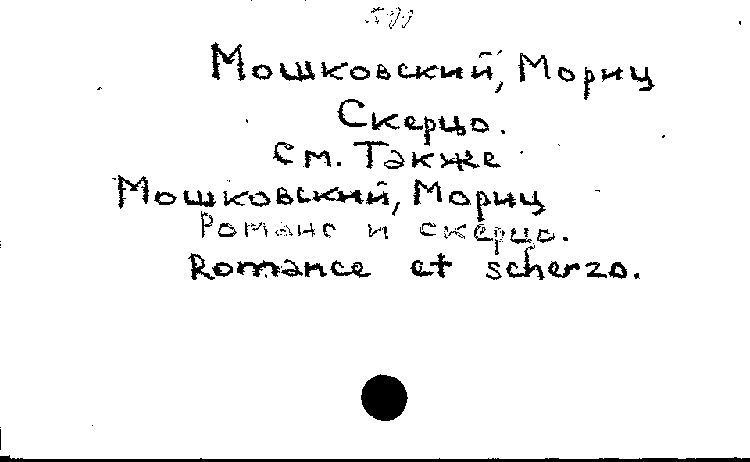 Мошковский, Мориц
Скерцо.
См. Также
Мошковский, Мориц
Романс и скерцо.
Romance et scherzo.